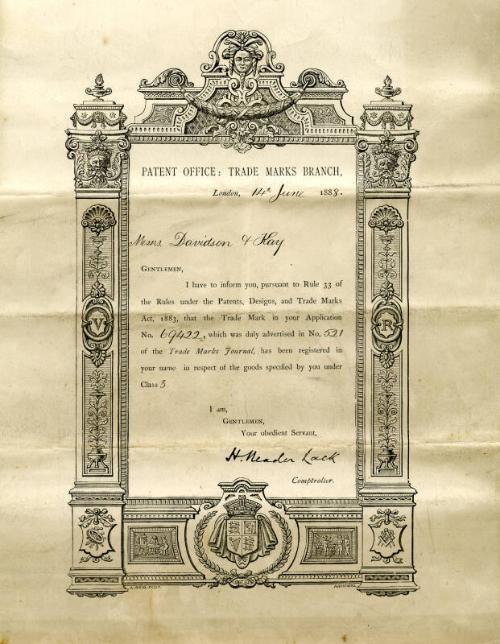 PATENT OFFICE: TRADE MARKS BRANCH,
London, 14th June 1888.
Messrs Davidson & Kay
GENTLEMEN,
I have to inform you, pursuant to Rule 33 of
the Rules under the Patents, Designs, and Trade Marks
Act, 1883, that the Trade Mark in your Application
No. 69422, which was duly advertised in No. 521
of the Trade Marks Journal, has been registered in
your name in respect of the goods specified by you under
Class 3
I am,
GENTLEMEN,
Your obedient Servant,
H. Reader Lack
Comptroller.
V
R